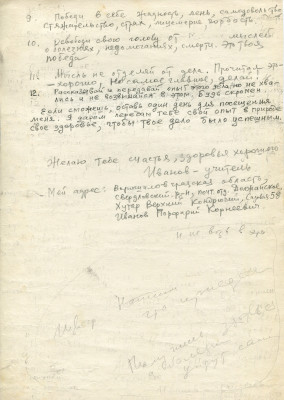 9. Победи в себе жадность, лень, самодовольство
стяжательство, страх, лицемерие гордость.
10. Освободи свою голову от мыслей
о болезнях, недомоганиях, смерти. Это твоя
победа
11. Мысль не отделяй от дела. Прочитал
– хорошо, Но самое главное, делай!
12. Рассказывай и передавай опыт этого дела но не хва
лись и не возвышайся в этом. Будь скромен
Если сможешь, оставь один день для посещения
меня. Я даром передам тебе свой опыт в природе
свое здоровье, чтобы твое дело было успешным.
Желаю тебе счастья, здоровья хорошего
Иванов – учитель
Мой адрес: Ворошиловградская область,
Свердловский р-н, почт. отд.
Хутор Верхний Кондрючий, 58
Иванов Порфирий Корнеевич